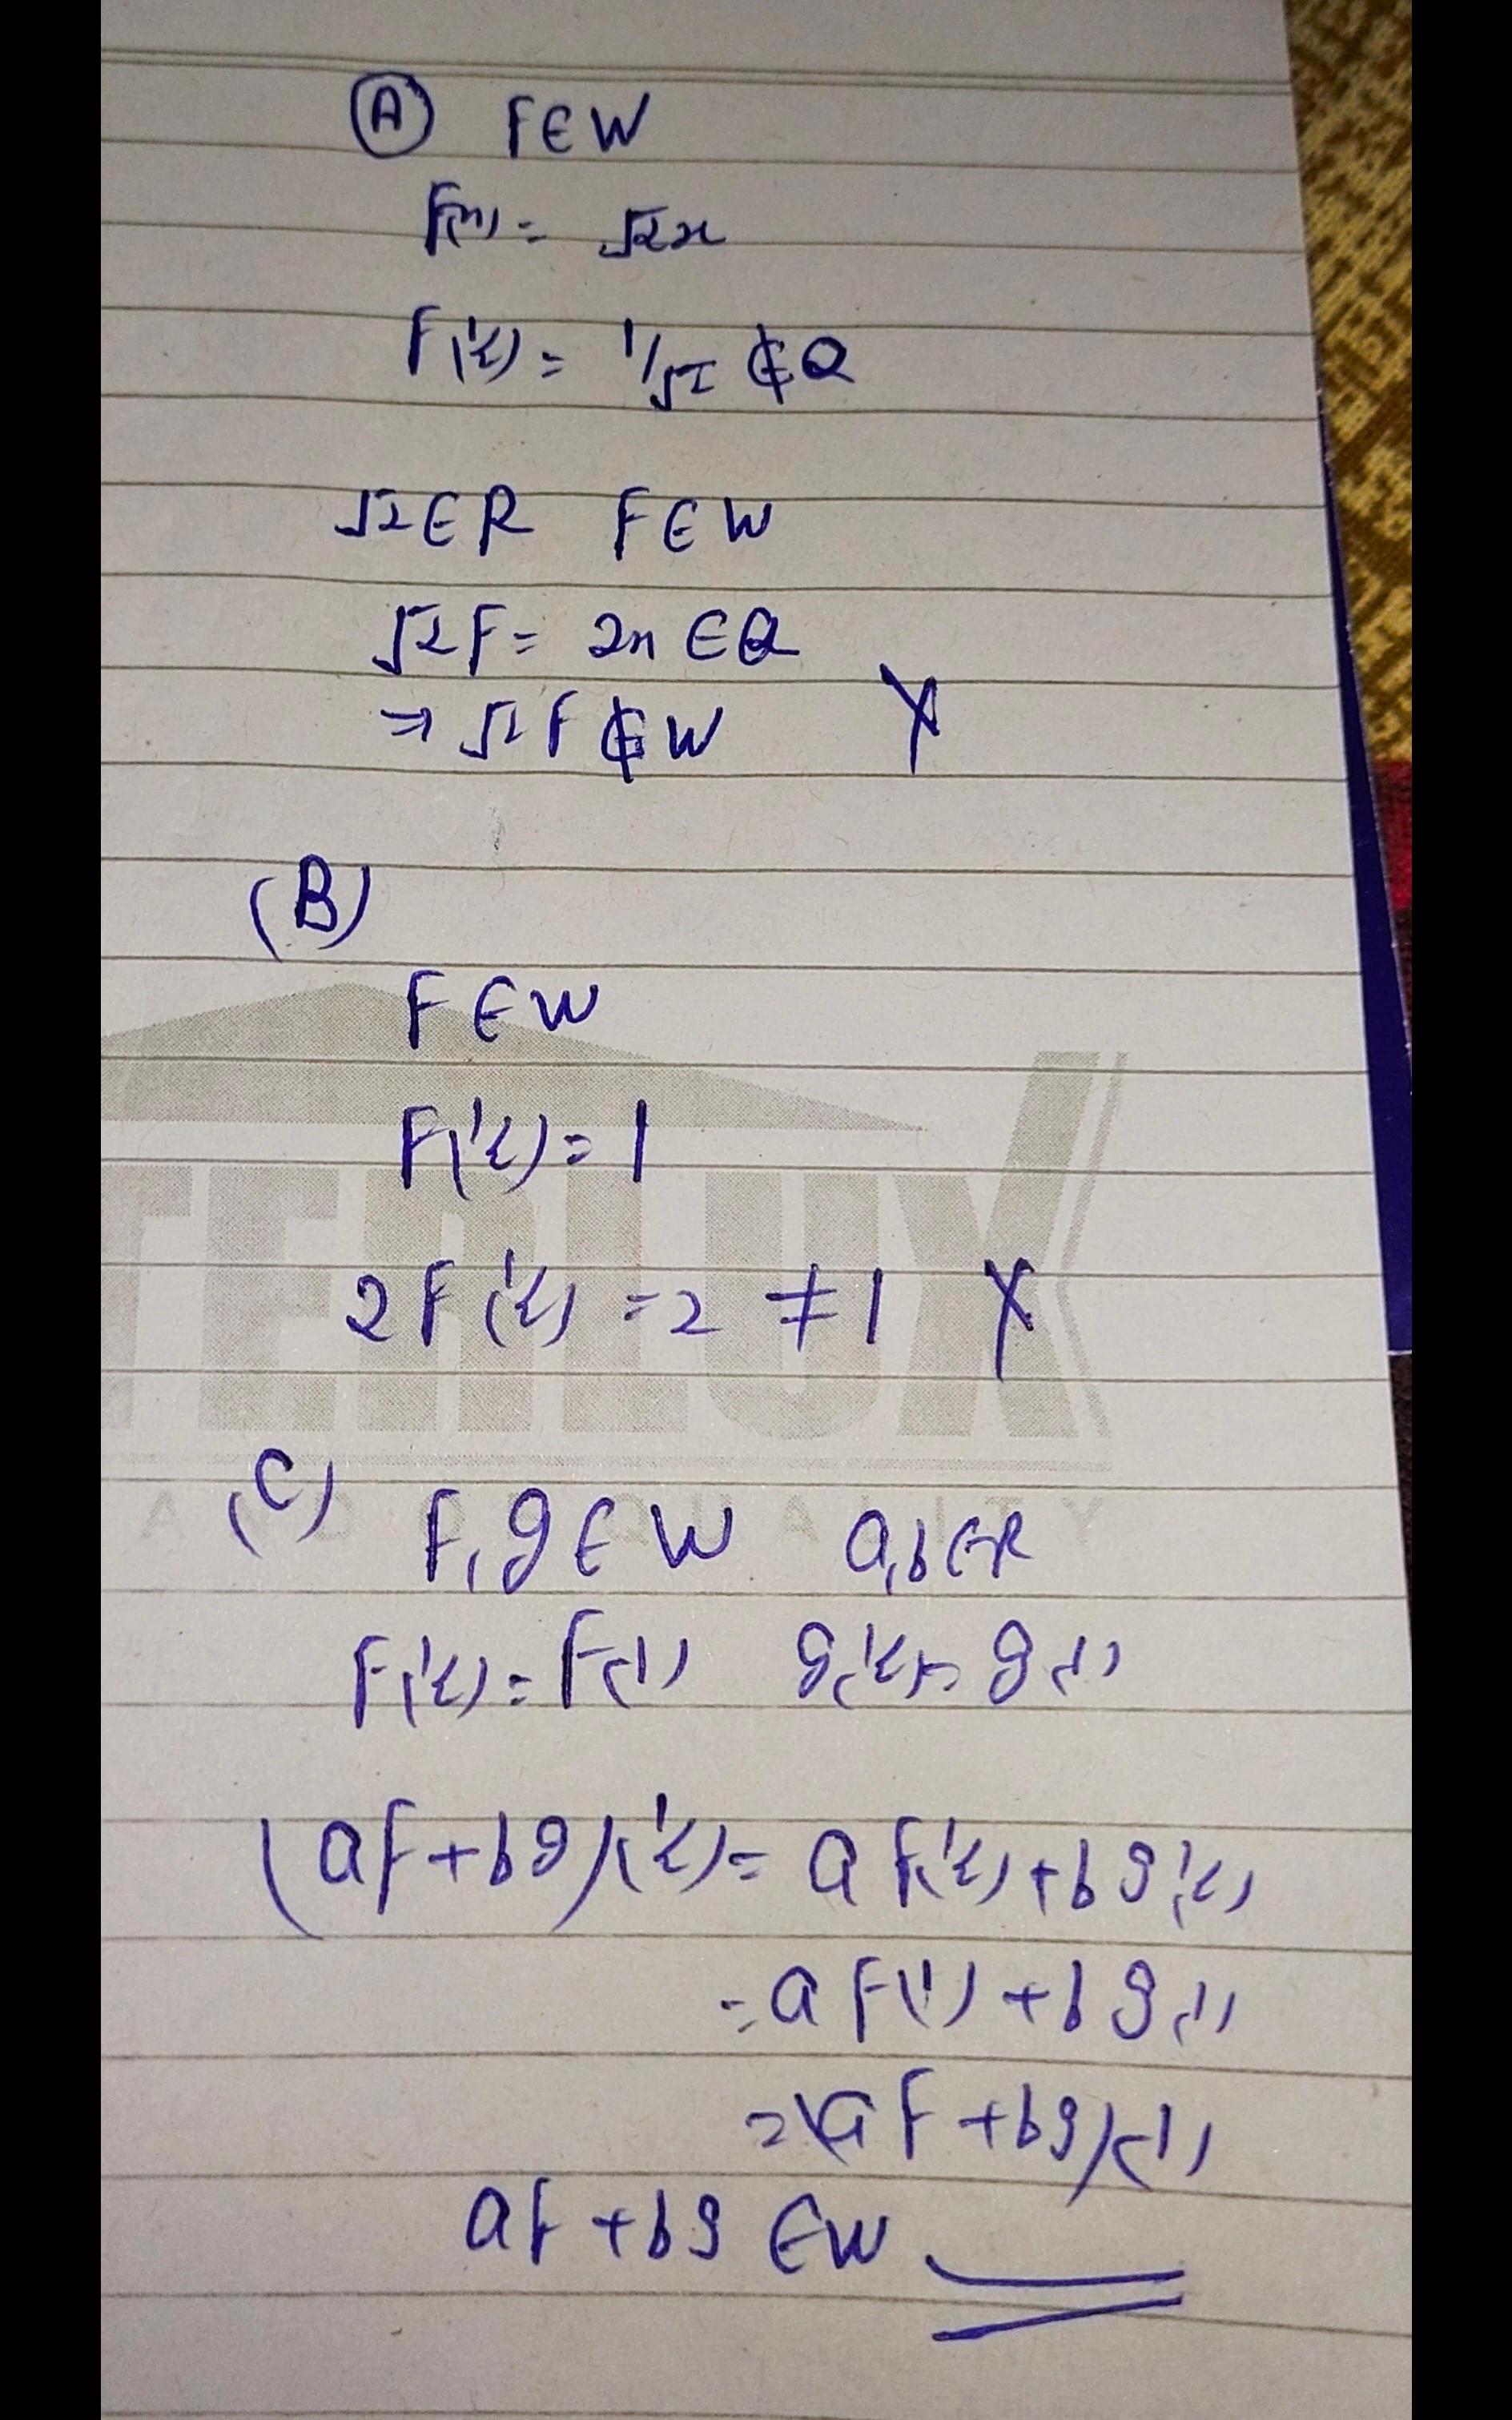 (A) F∈W
F(x) = √2x
F(1/2) = 1/√2 ∉ Q
√2 ∈ R F ∈ W
√2F = 2x ∈ Q
⇒ √2 F ∉ W X
(B)
F ∈ W
F(1/2) = 1
2F(1/2) = 2 ≠ 1 X
(C) F, g ∈ W a,b ∈ R
F(1/2) = F(1) g(1/2) = g(1)
(aF+bg)(1/2) = a F(1/2) + b g(1/2)
= a F(1) + b g(1)
= (aF + bg)(1)
aF + bg ∈ W